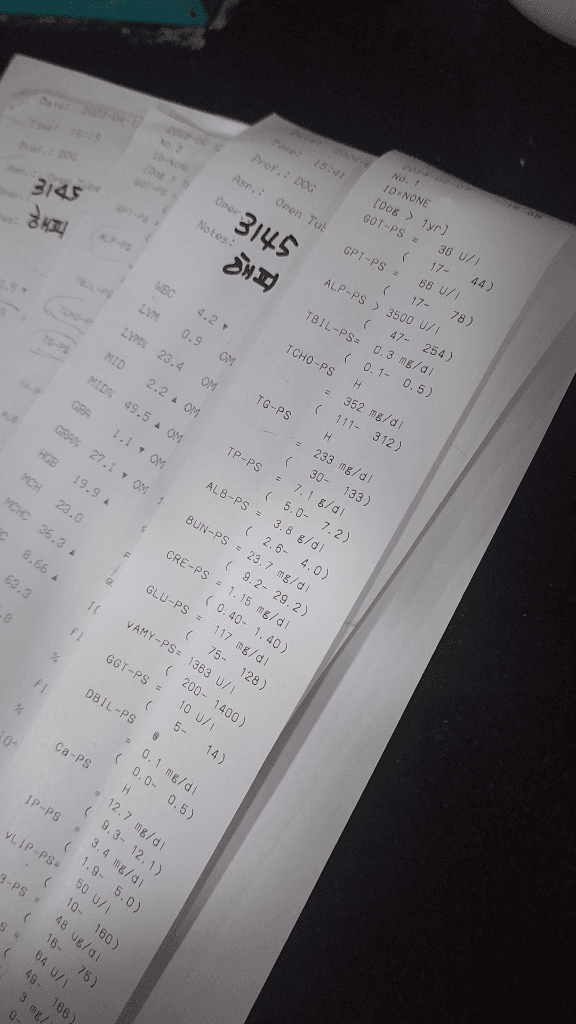 Date:
Time: 16:19
Prof.: DOG
3145
해피
No.2
ID=NONE
GPT-PS
ALP-PS
TBIL-PS
TCHO-PS
TG-PS
Time: 15:41
Prof.: DOG
Asr.: Open Tub
Oper
3145
Notes:
해피
WBC 4.2 ▼
LYM 0.9 OM
LYM% 23.4 OM
MID 2.2 ▲ OM
MID% 49.5 ▲ OM
GRA 1.1 ▼ OM
GRA% 27.1 ▼ OM
HGB 19.9 ▲
MCH 23.0
MCHC 36.3 ▲
8.66 ▲
63.3
No.1
ID=NONE
[Dog > 1yr]
GOT-PS = 36 U/l
( 17- 44)
GPT-PS = 66 U/l
( 17- 78)
ALP-PS > 3500 U/l
( 47- 254)
TBIL-PS= 0.3 mg/dl
( 0.1- 0.5)
TCHO-PS H
= 352 mg/dl
( 111- 312)
TG-PS H
= 233 mg/dl
( 30- 133)
TP-PS = 7.1 g/dl
( 5.0- 7.2)
ALB-PS = 3.8 g/dl
( 2.6- 4.0)
BUN-PS = 23.7 mg/dl
( 9.2- 29.2)
CRE-PS = 1.15 mg/dl
( 0.40- 1.40)
GLU-PS = 117 mg/dl
( 75- 128)
vAMY-PS= 1363 U/l
( 200- 1400)
GGT-PS = 10 U/l
( 5- 14)
DBIL-PS @
= 0.1 mg/dl
( 0.0- 0.5)
Ca-PS H
= 12.7 mg/dl
( 9.3- 12.1)
IP-PS = 3.4 mg/dl
( 1.9- 5.0)
vLIP-PS= 50 U/l
( 10- 160)
3-PS = 48 ug/dl
( 16- 75)
S = 64 U/l
( 49- 166)
3 mg/